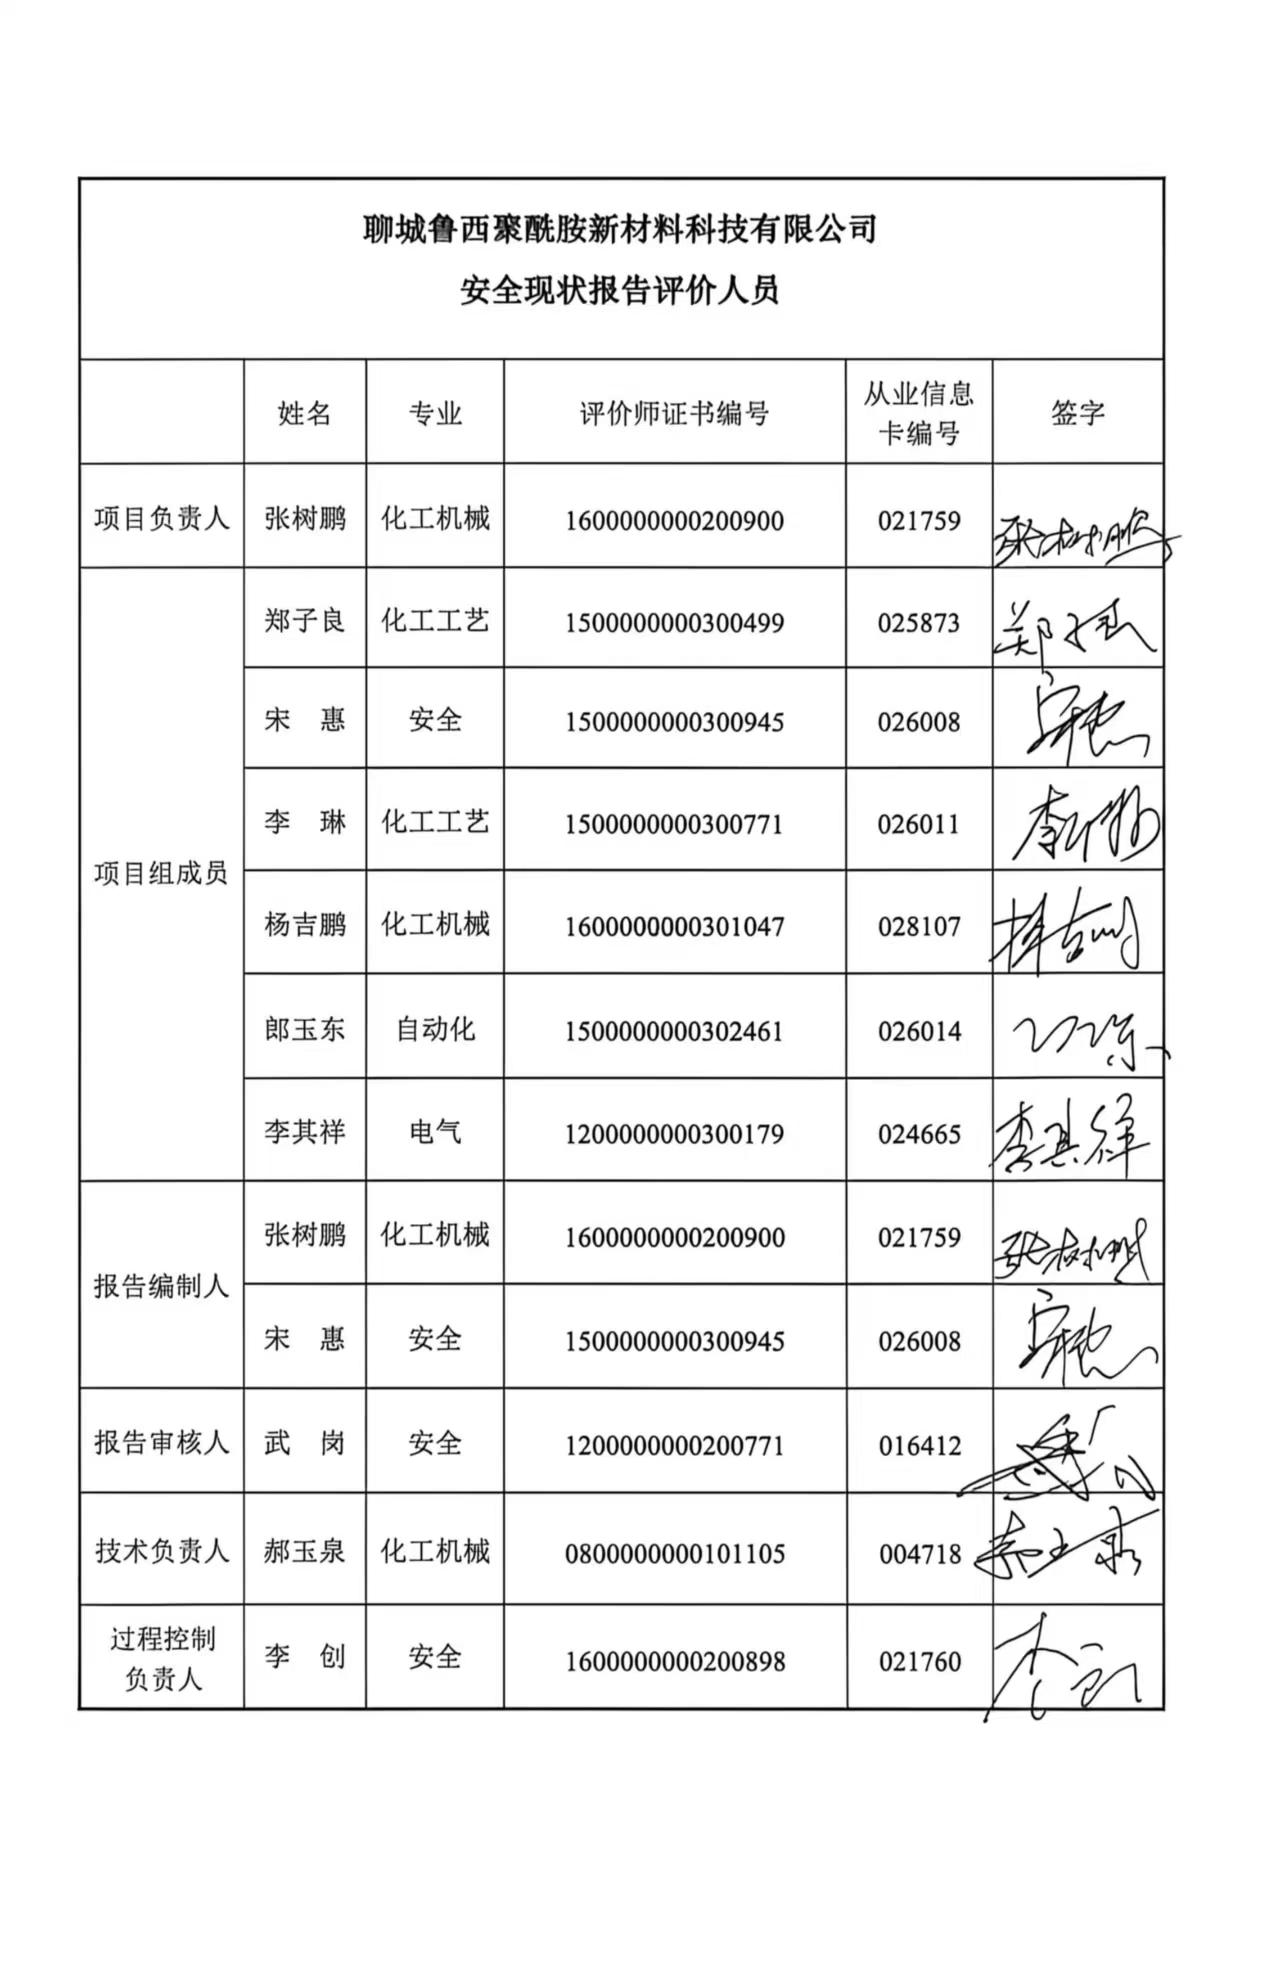 聊城鲁西聚酰胺新材料科技有限公司
安全现状报告评价人员
姓名 专业 评价师证书编号 从业信息卡编号 签字
项目负责人 张树鹏 化工机械 1600000000200900 021759 张树鹏
项目组成员
郑子良 化工工艺 1500000000300499 025873 郑子良
宋 惠 安全 1500000000300945 026008 宋惠
李 琳 化工工艺 1500000000300771 026011 李琳
杨吉鹏 化工机械 1600000000301047 028107 杨吉鹏
郎玉东 自动化 1500000000302461 026014
李其祥 电气 1200000000300179 024665 李其祥
报告编制人
张树鹏 化工机械 1600000000200900 021759 张树鹏
宋 惠 安全 1500000000300945 026008 宋惠
报告审核人 武 岗 安全 1200000000200771 016412
技术负责人 郝玉泉 化工机械 0800000000101105 004718 郝玉泉
过程控制负责人 李 创 安全 1600000000200898 021760 李创